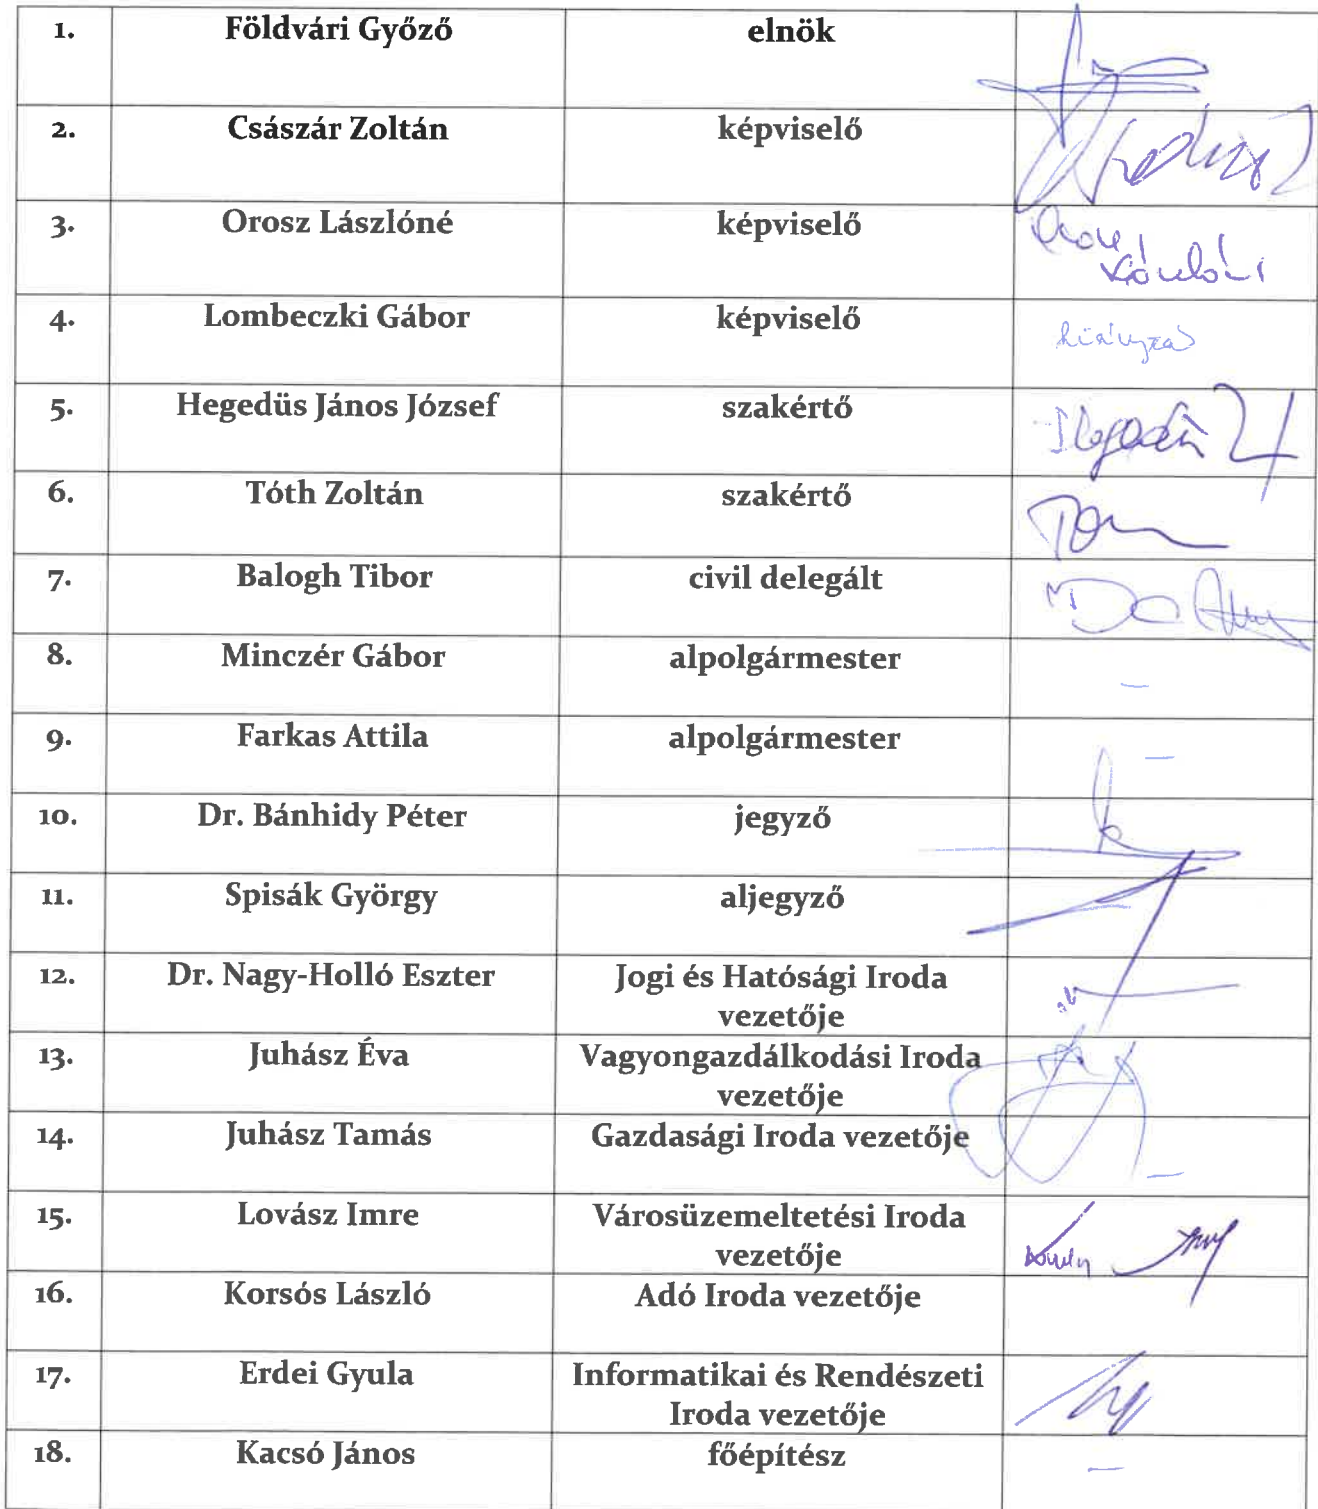 1. Földvári Győző elnök
2. Császár Zoltán képviselő
3. Orosz Lászlóné képviselő
4. Lombeczki Gábor képviselő hiányzás
5. Hegedüs János József szakértő
6. Tóth Zoltán szakértő
7. Balogh Tibor civil delegált
8. Minczér Gábor alpolgármester –
9. Farkas Attila alpolgármester –
10. Dr. Bánhidy Péter jegyző
11. Spisák György aljegyző
12. Dr. Nagy-Holló Eszter Jogi és Hatósági Iroda
vezetője
13. Juhász Éva Vagyongazdálkodási Iroda
vezetője
14. Juhász Tamás Gazdasági Iroda vezetője –
15. Lovász Imre Városüzemeltetési Iroda
vezetője
16. Korsós László Adó Iroda vezetője
17. Erdei Gyula Informatikai és Rendészeti
Iroda vezetője
18. Kacsó János főépítész –